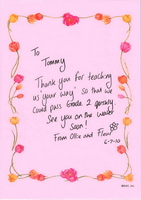 To
Tommy
'Thank you for teaching
us your way' so that we
could pass Grade 2 quickly.
See you on the water
soon!
From Ollie and Fleur
6-7-10